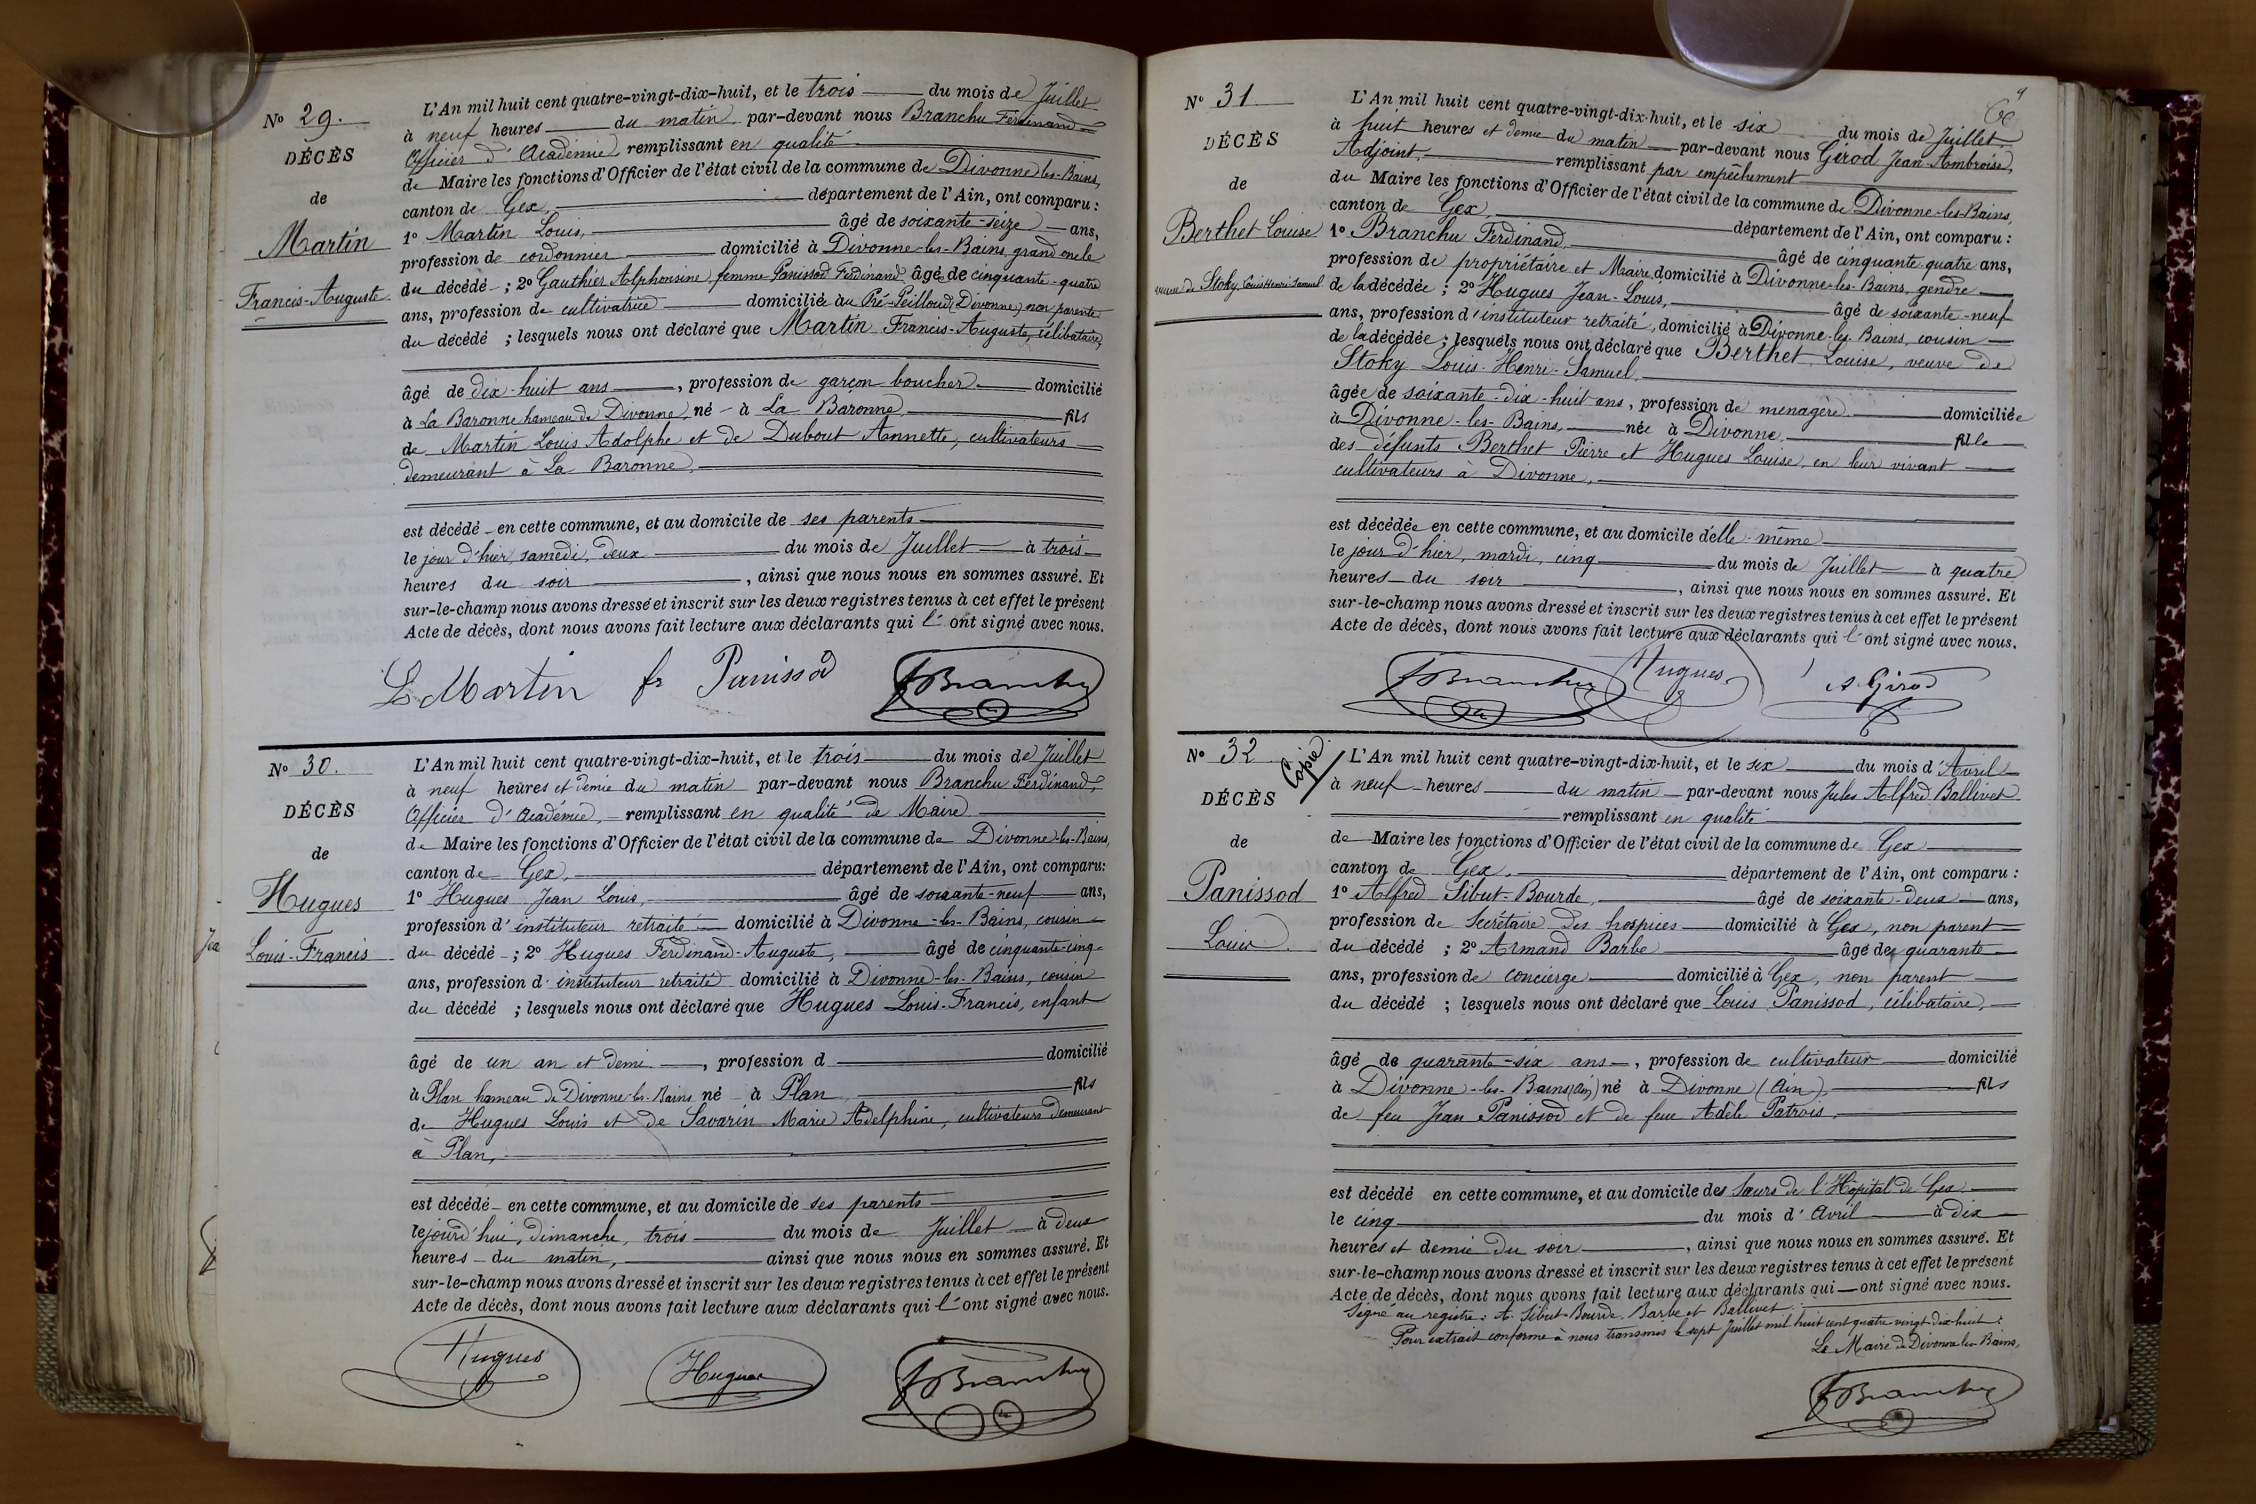 N° 29.
DÉCÈS
de
Martin
Francis-Auguste
L'An mil huit cent quatre-vingt-dix-huit, et le trois du mois de Juillet
à neuf heures du matin par-devant nous Branchu Ferdinand
Officier d'Académie remplissant en qualité
de Maire les fonctions d'Officier de l'état civil de la commune de Divonne-les-Bains,
canton de Gex, département de l'Ain, ont comparu :
1° Martin Louis, âgé de soixante-seize ans,
profession de cordonnier domicilié à Divonne-les-Bains grand oncle
du décédé ; 2° Gauthier Alphonsine femme Panissod Ferdinand âgée de cinquante-quatre
ans, profession de cultivatrice domiciliée au Pré-Peilloud (Divonne) non parente
du décédé ; lesquels nous ont déclaré que Martin Francis-Auguste, célibataire,
âgé de dix-huit ans, profession de garçon boucher domicilié
à La Baronne hameau de Divonne, né à La Baronne, fils
de Martin Louis Adolphe et de Dubout Annette, cultivateurs
demeurant à La Baronne,
est décédé en cette commune, et au domicile de ses parents
le jour d'hier, samedi, deux du mois de Juillet à trois
heures du soir, ainsi que nous nous en sommes assuré. Et
sur-le-champ nous avons dressé et inscrit sur les deux registres tenus à cet effet le présent
Acte de décès, dont nous avons fait lecture aux déclarants qui l'ont signé avec nous.
L. Martin fe Panissod FBranchu
N° 30.
DÉCÈS
de
Hugues
Louis-Francis
L'An mil huit cent quatre-vingt-dix-huit, et le trois du mois de Juillet
à neuf heures et demie du matin par-devant nous Branchu Ferdinand,
Officier d'Académie, remplissant en qualité de Maire
de Maire les fonctions d'Officier de l'état civil de la commune de Divonne-les-Bains,
canton de Gex, département de l'Ain, ont comparu:
1° Hugues Jean Louis, âgé de soixante-neuf ans,
profession d'instituteur retraité domicilié à Divonne-les-Bains, cousin
du décédé ; 2° Hugues Ferdinand-Auguste, âgé de cinquante-cinq
ans, profession d'instituteur retraité domicilié à Divonne-les-Bains, cousin
du décédé ; lesquels nous ont déclaré que Hugues Louis-Francis, enfant
âgé de un an et demi, profession d domicilié
à Plan hameau de Divonne-les-Bains né à Plan fils
de Hugues Louis et de Savarin Marie Adelphine, cultivateurs demeurant
à Plan,
est décédé en cette commune, et au domicile de ses parents
le jourd'hui, dimanche, trois du mois de Juillet à deux
heures du matin, ainsi que nous nous en sommes assuré. Et
sur-le-champ nous avons dressé et inscrit sur les deux registres tenus à cet effet le présent
Acte de décès, dont nous avons fait lecture aux déclarants qui l'ont signé avec nous.
Hugues Hugues FBranchu
N° 31
DÉCÈS
de
Berthet Louise
veuve de Stoky Louis Henri-Samuel
L'An mil huit cent quatre-vingt-dix-huit, et le six du mois de Juillet
à huit heures et demie du matin par-devant nous Girod Jean-Ambroise,
Adjoint, remplissant par empêchement
du Maire les fonctions d'Officier de l'état civil de la commune de Divonne-les-Bains,
canton de Gex, département de l'Ain, ont comparu :
1° Branchu Ferdinand âgé de cinquante-quatre ans,
profession de propriétaire et Maire, domicilié à Divonne-les-Bains, gendre
de la décédée ; 2° Hugues Jean-Louis, âgé de soixante-neuf
ans, profession d'instituteur retraité, domicilié à Divonne-les-Bains, cousin
de la décédée ; lesquels nous ont déclaré que Berthet Louise, veuve de
Stoky Louis-Henri-Samuel,
âgée de soixante-dix-huit ans, profession de ménagère domiciliée
à Divonne-les-Bains née à Divonne, fille
des défunts Berthet Pierre et Hugues Louise, en leur vivant
cultivateurs à Divonne,
est décédée en cette commune, et au domicile d'elle-même
le jour d'hier, mardi, cinq du mois de Juillet à quatre
heures du soir, ainsi que nous nous en sommes assuré. Et
sur-le-champ nous avons dressé et inscrit sur les deux registres tenus à cet effet le présent
Acte de décès, dont nous avons fait lecture aux déclarants qui l'ont signé avec nous.
FBranchu Hugues A. Girod
N° 32
Copié
DÉCÈS
de
Panissod
Louis
L'An mil huit cent quatre-vingt-dix-huit, et le six du mois d'Avril
à neuf heures du matin par-devant nous Jules Alfred Ballivet
remplissant en qualité
de Maire les fonctions d'Officier de l'état civil de la commune de Gex
canton de Gex, département de l'Ain, ont comparu :
1° Alfred Sibut-Bourde, âgé de soixante-deux ans,
profession de Secrétaire des hospices domicilié à Gex, non parent
du décédé ; 2° Armand Barbe âgé de quarante
ans, profession de concierge domicilié à Gex, non parent
du décédé ; lesquels nous ont déclaré que Louis Panissod, célibataire,
âgé de quarante-six ans, profession de cultivateur domicilié
à Divonne-les-Bains (Ain) né à Divonne (Ain), fils
de feu Jean Panissod et de feue Adèle Patrois,
est décédé en cette commune, et au domicile des Sœurs de l'Hôpital de Gex
le cinq du mois d'Avril à dix
heures et demie du soir, ainsi que nous nous en sommes assuré. Et
sur-le-champ nous avons dressé et inscrit sur les deux registres tenus à cet effet le présent
Acte de décès, dont nous avons fait lecture aux déclarants qui ont signé avec nous.
Signé au registre : A. Sibut-Bourde, Barbe et Ballivet
Pour extrait conforme à nous transmis le sept Juillet mil huit cent quatre-vingt-dix-huit :
Le Maire de Divonne-les-Bains,
FBranchu